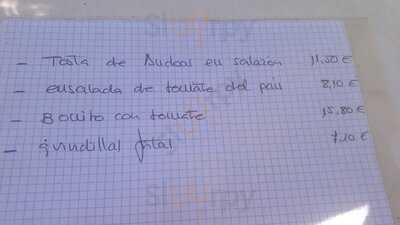 Sluurpy
- Tosta de Anchoas en salazón 11,50 €
- ensalada de tomate del pais 8,10 €
Sluurpy
- Bonito con tomate 15,80 €
- guindillas 7,10 €
Sluurpy